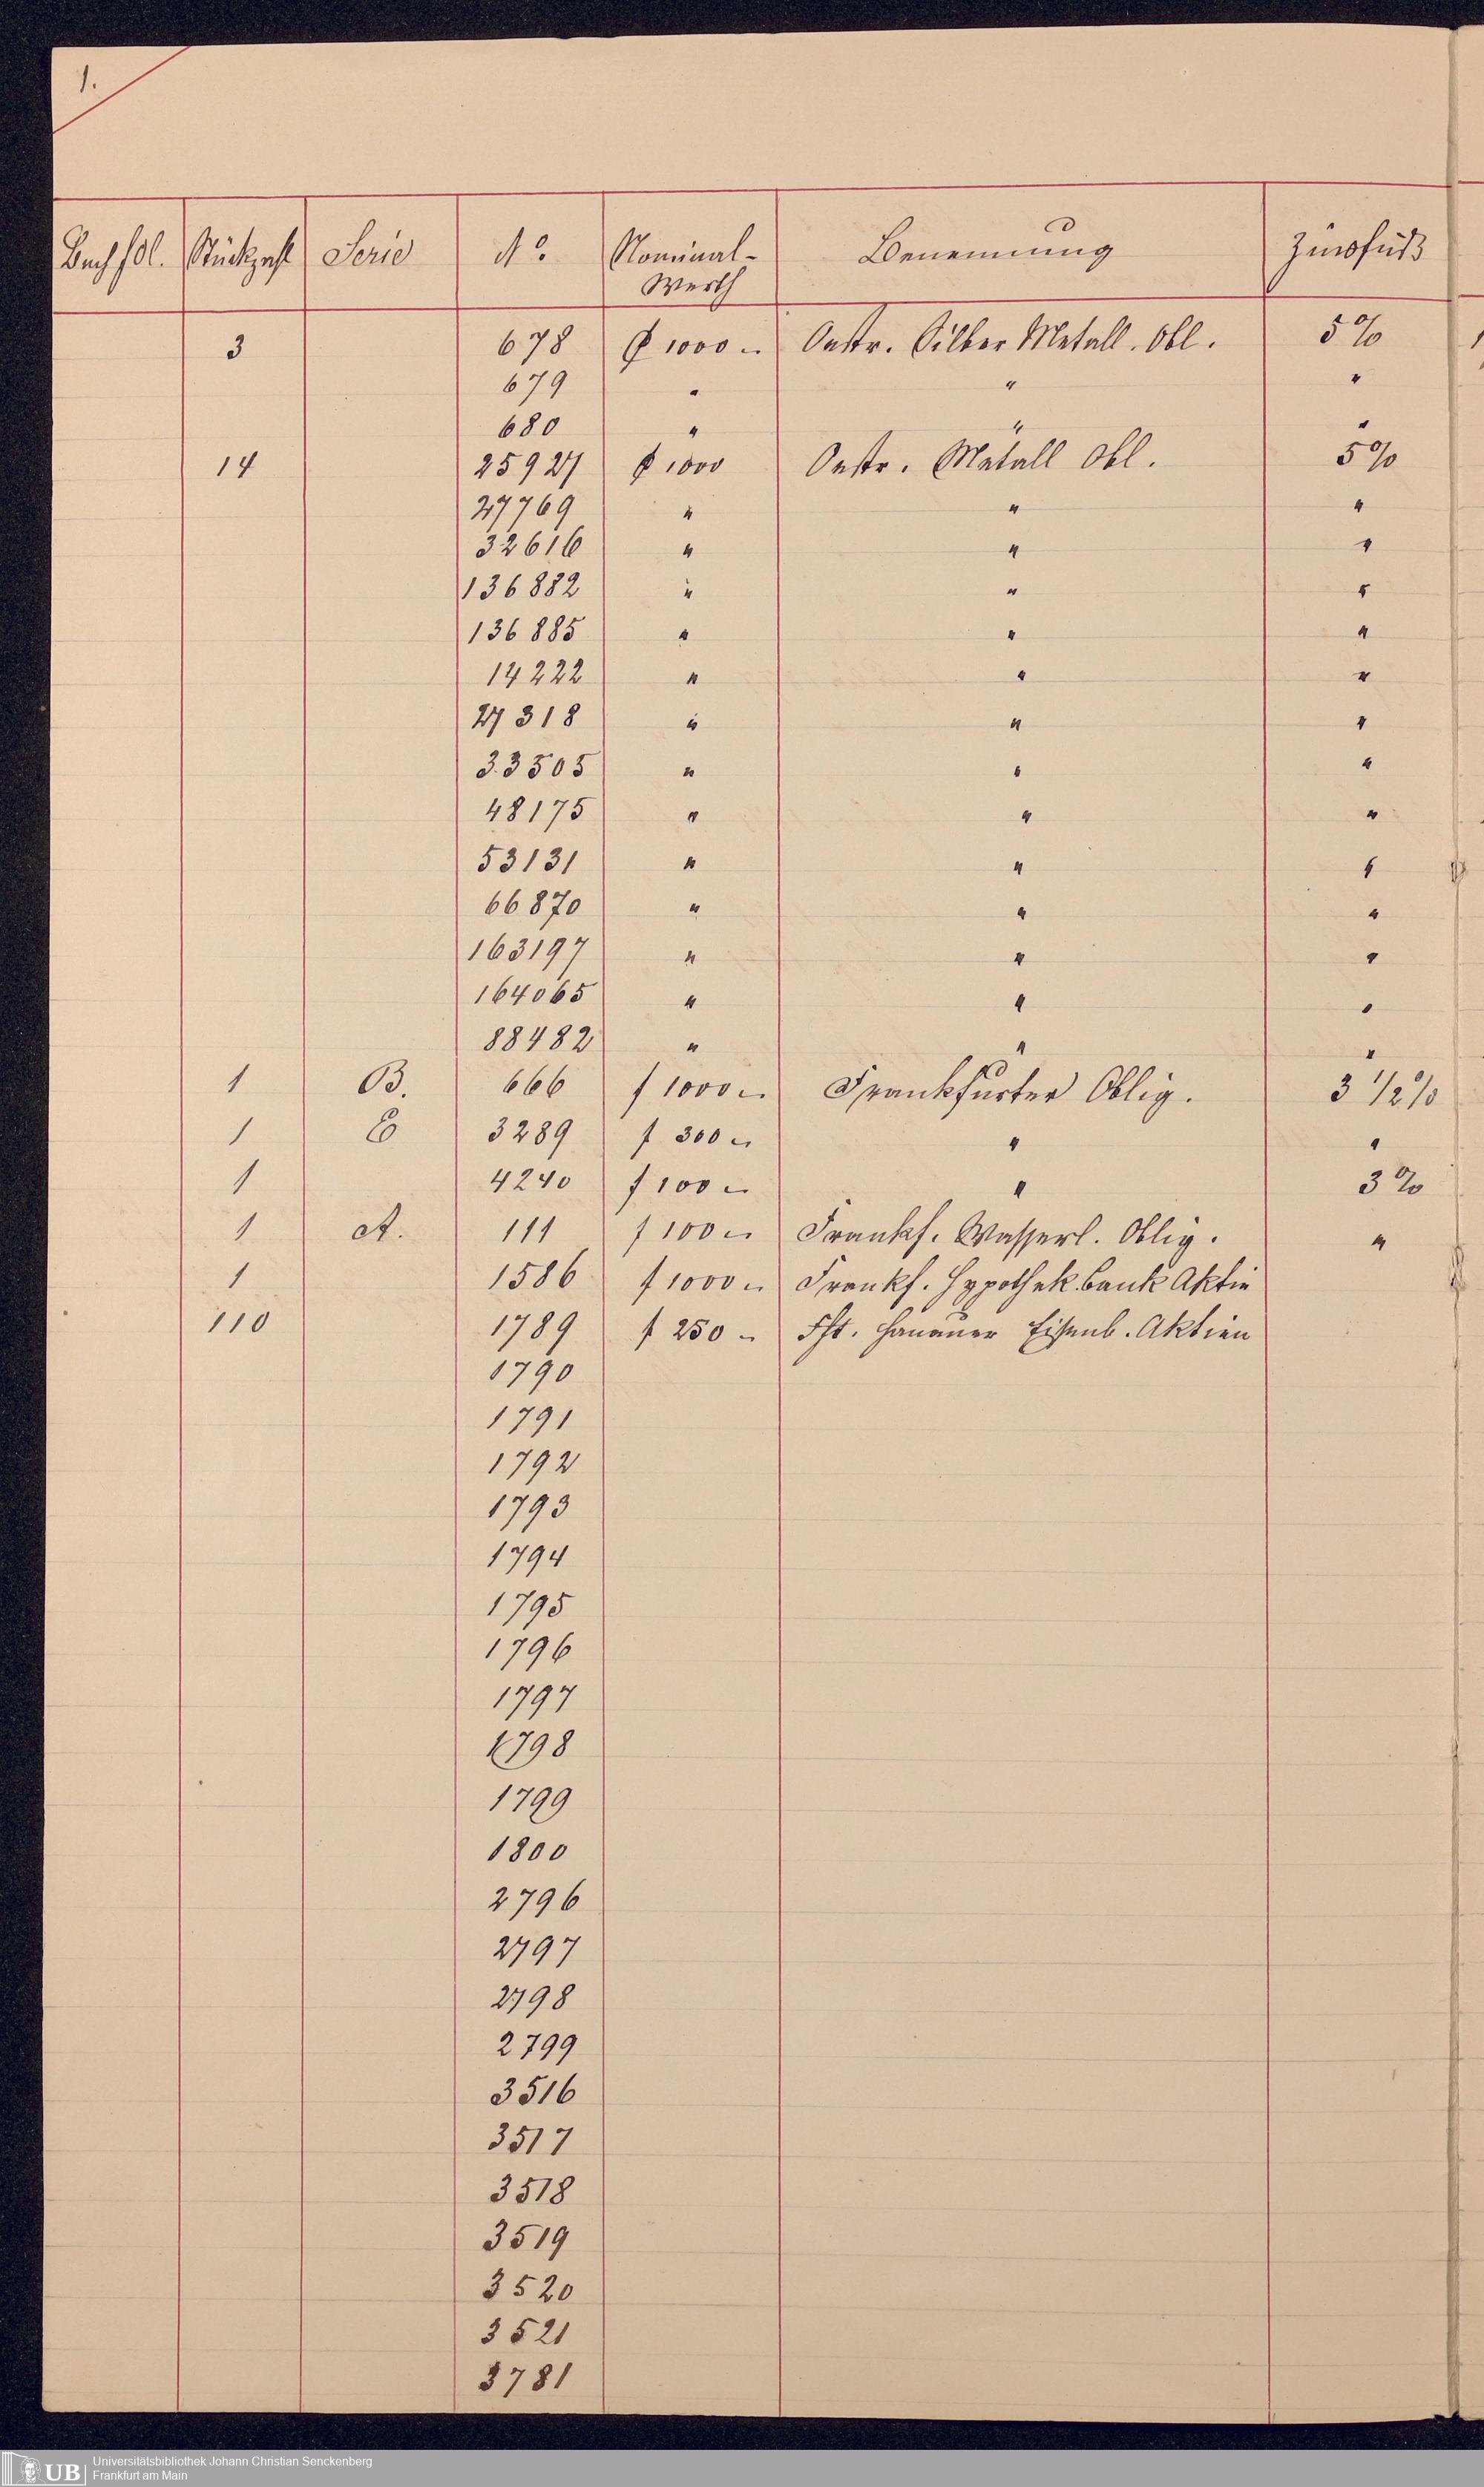 1.
Buch fol. Stückzahl Serie No. Nominal-Werth Benennung Zinsfuß
3 678 f 1000 " Oestr. Silber Metall. Obl. 5%
679 " " "
680 " " "
14 25927 f 1000 Oestr. Metall Obl. 5%
27769 " " "
32616 " " "
136882 " " "
136885 " " "
14222 " " "
27318 " " "
33505 " " "
48175 " " "
53131 " " "
66870 " " "
163197 " " "
164065 " " "
88482 " " "
1 B. 666 f 1000 " Frankfurter Oblig. 3 1/2%
1 E 3289 f 300 " " "
1 4240 f 100 " " 3%
1 A. 111 f 100 " Frankf. Wasserl. Oblig. "
1 1586 f 1000 " Frankf. Hypothek. bank Aktie
110 1789 f 250 " Fft. Hanauer Eisenb. Aktien
1790
1791
1792
1793
1794
1795
1796
1797
1798
1799
1800
2796
2797
2798
2799
3516
3517
3518
3519
3520
3521
3781
UB Universitätsbibliothek Johann Christian Senckenberg
Frankfurt am Main